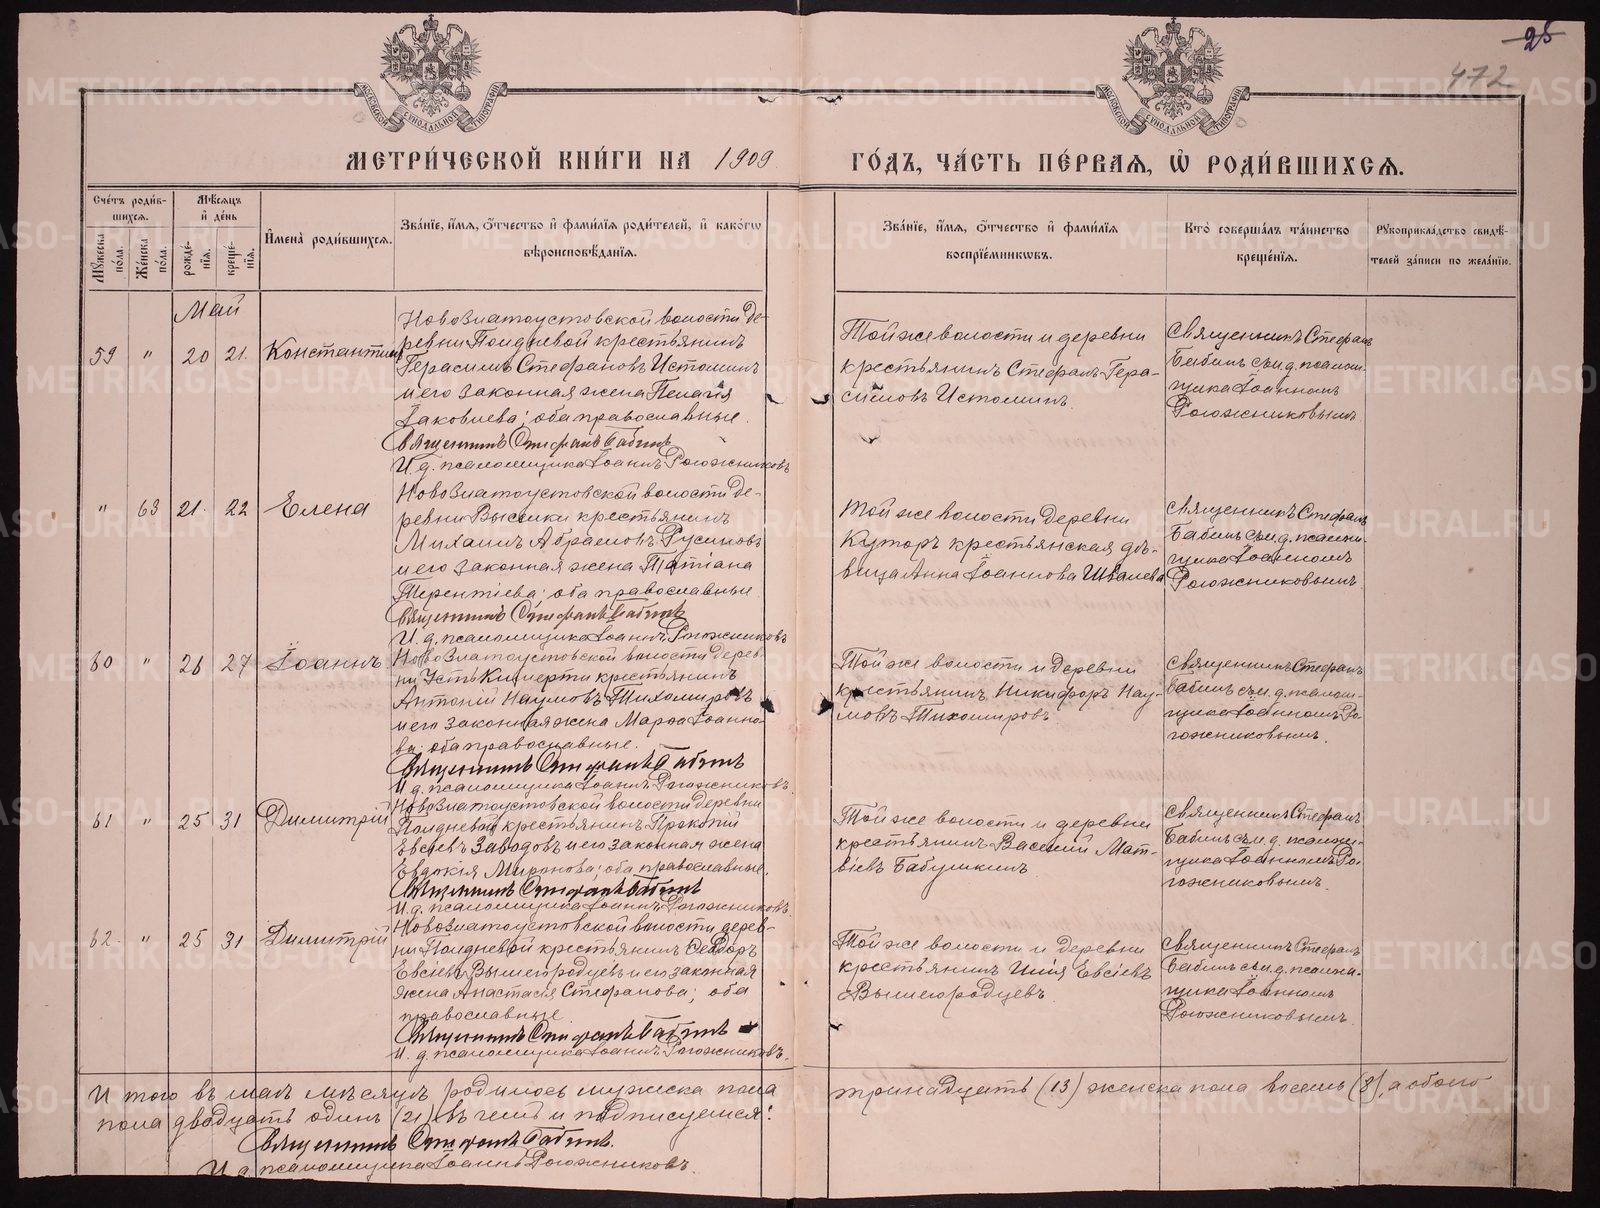 25
472
МЕТРИ́ЧЕСКОЙ КНИ́ГИ НА 1909 ГО́ДЪ, ЧА́СТЬ ПЕ́РВАЯ, Ѡ҆ РОДИ́ВШИХСЯ.
Сче́тъ роди́в-
шихся.
Мѣ́сяцъ
и҆ де́нь
Мꙋ́жеска по́ла.
Же́нска по́ла.
рожде́-
нїѧ.
креще́-
нїѧ.
И҆мена̀ роди́вшихся.
Зва́нїе, и҆́мѧ, ѻ҆́тчество и҆ фами́лїѧ роди́телей, и҆ како́гѡ
вѣроисповѣ́данїѧ.
Зва́нїе, и҆́мѧ, ѻ҆́тчество и҆ фами́лїѧ
воспрїе́мникѡвъ.
Кто̀ соверша́лъ та́инство
креще́нїѧ.
Рꙋкоприкла́дство свидѣ́-
телей за́писи по жела́нїю.
Май
59 " 20 21. Константинъ
Новозлатоустовской волости де-
ревни Полдневой крестьянинъ
Герасимъ Стефановъ Истоминъ
и его законная жена Пелагія
Іаковлева; оба православные.
Священникъ Стефанъ Бабинъ
И. д. псаломщика Іоаннъ Рогожниковъ
Той же волости и деревни
крестьянинъ Стефанъ Гера-
симовъ Истоминъ.
Священникъ Стефанъ
Бабинъ съ и. д. псалом-
щика Іоанномъ
Рогожниковымъ.
" 63 21. 22 Елена
Новозлатоустовской волости де-
ревни Высылки крестьянинъ
Михаилъ Абрамовъ Русиновъ
и его законная жена Татіана
Терентіева; оба православные.
Священникъ Стефанъ Бабинъ
И. д. псаломщика Іоаннъ Рогожниковъ
Той же волости деревни
крестьянская дѣ-
вица Анна Іоаннова Швалева
Священникъ Стефанъ
Бабинъ съ и. д. псалом-
щика Іоанномъ
Рогожниковымъ.
60 " 26 27 Іоаннъ
Новозлатоустовской волости дерев-
ни Усть Кишерти крестьянинъ
Антоній Наумовъ Тихомировъ
и его законная жена Марѳа Іоанно-
ва; оба православные.
Священникъ Стефанъ Бабинъ
И. д. псаломщика Іоаннъ Рогожниковъ.
Той же волости и деревни
крестьянинъ Никифоръ Нау-
мовъ Тихомировъ.
Священникъ Стефанъ
Бабинъ съ и. д. псалом-
щика Іоанномъ Ро-
гожниковымъ.
61 " 25 31 Димитрій
Новозлатоустовской волости деревни
Полдневой крестьянинъ Прокопій
Евсіевъ Заводовъ и его законная жена
Евдокія Миронова; оба православные.
Священникъ Стефанъ Бабинъ
И. д. псаломщика Іоаннъ Рогожниковъ.
Той же волости и деревни
крестьянинъ Василій Мат-
віевъ Бабушкинъ
Священникъ Стефанъ
Бабинъ съ и. д. псалом-
щика Іоанномъ Ро-
гожниковымъ.
62. " 25 31 Димитрій
Новозлатоустовской волости дерев-
ни Полдневой крестьянинъ Ѳеодоръ
Евсіевъ Вышегородцевъ и его законная
жена Анастасія Стефанова; оба
православные
Священникъ Стефанъ Бабинъ
И. д. псаломщика Іоаннъ Рогожниковъ.
Той же волости и деревни
крестьянинъ Илія Евсіевъ
Вышегородцевъ.
Священникъ Стефанъ
Бабинъ съ и. д. псалом-
щика Іоанномъ
Рогожниковымъ.
Итого въ маѣ мѣсяцѣ родилось мужска пола тринадцать (13) женска пола восемь (8), а обоего
пола двадцать одинъ (21) въ чемъ и подписуемся:
Священникъ Стефанъ Бабинъ.
И. д. псаломщика Іоаннъ Рогожниковъ.